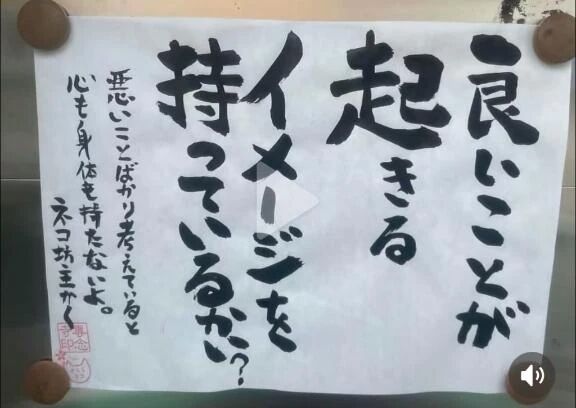 良いことが
起きる
イメージを
持っているかい?
悪いことばかり考えていると
心も身体も持たないよ。
ネコ坊主から
専念
寺印